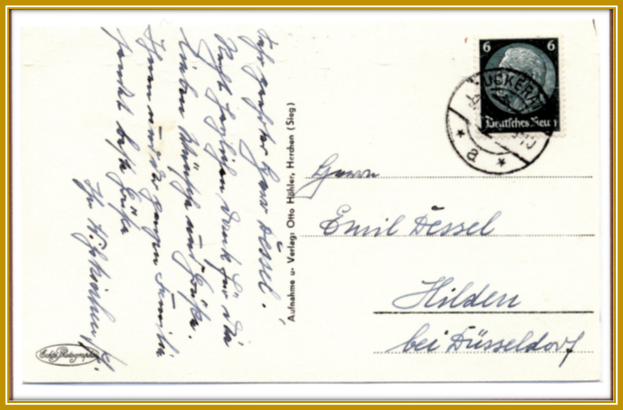 Sehr geehrter Herr Dessel!
Recht herzlichen Dank für die
lieben Wünsche und Grüße.
Ihnen und der ganzen Familie
sendet beste Grüße
Ihr
Aufnahme u. Verlag: Otto Höhler, Herchen (Sieg)
Echte Photographie
6 6
Deutsches Reich
UCKERA
a
Herrn
Emil Dessel
Hilden
bei Düsseldorf